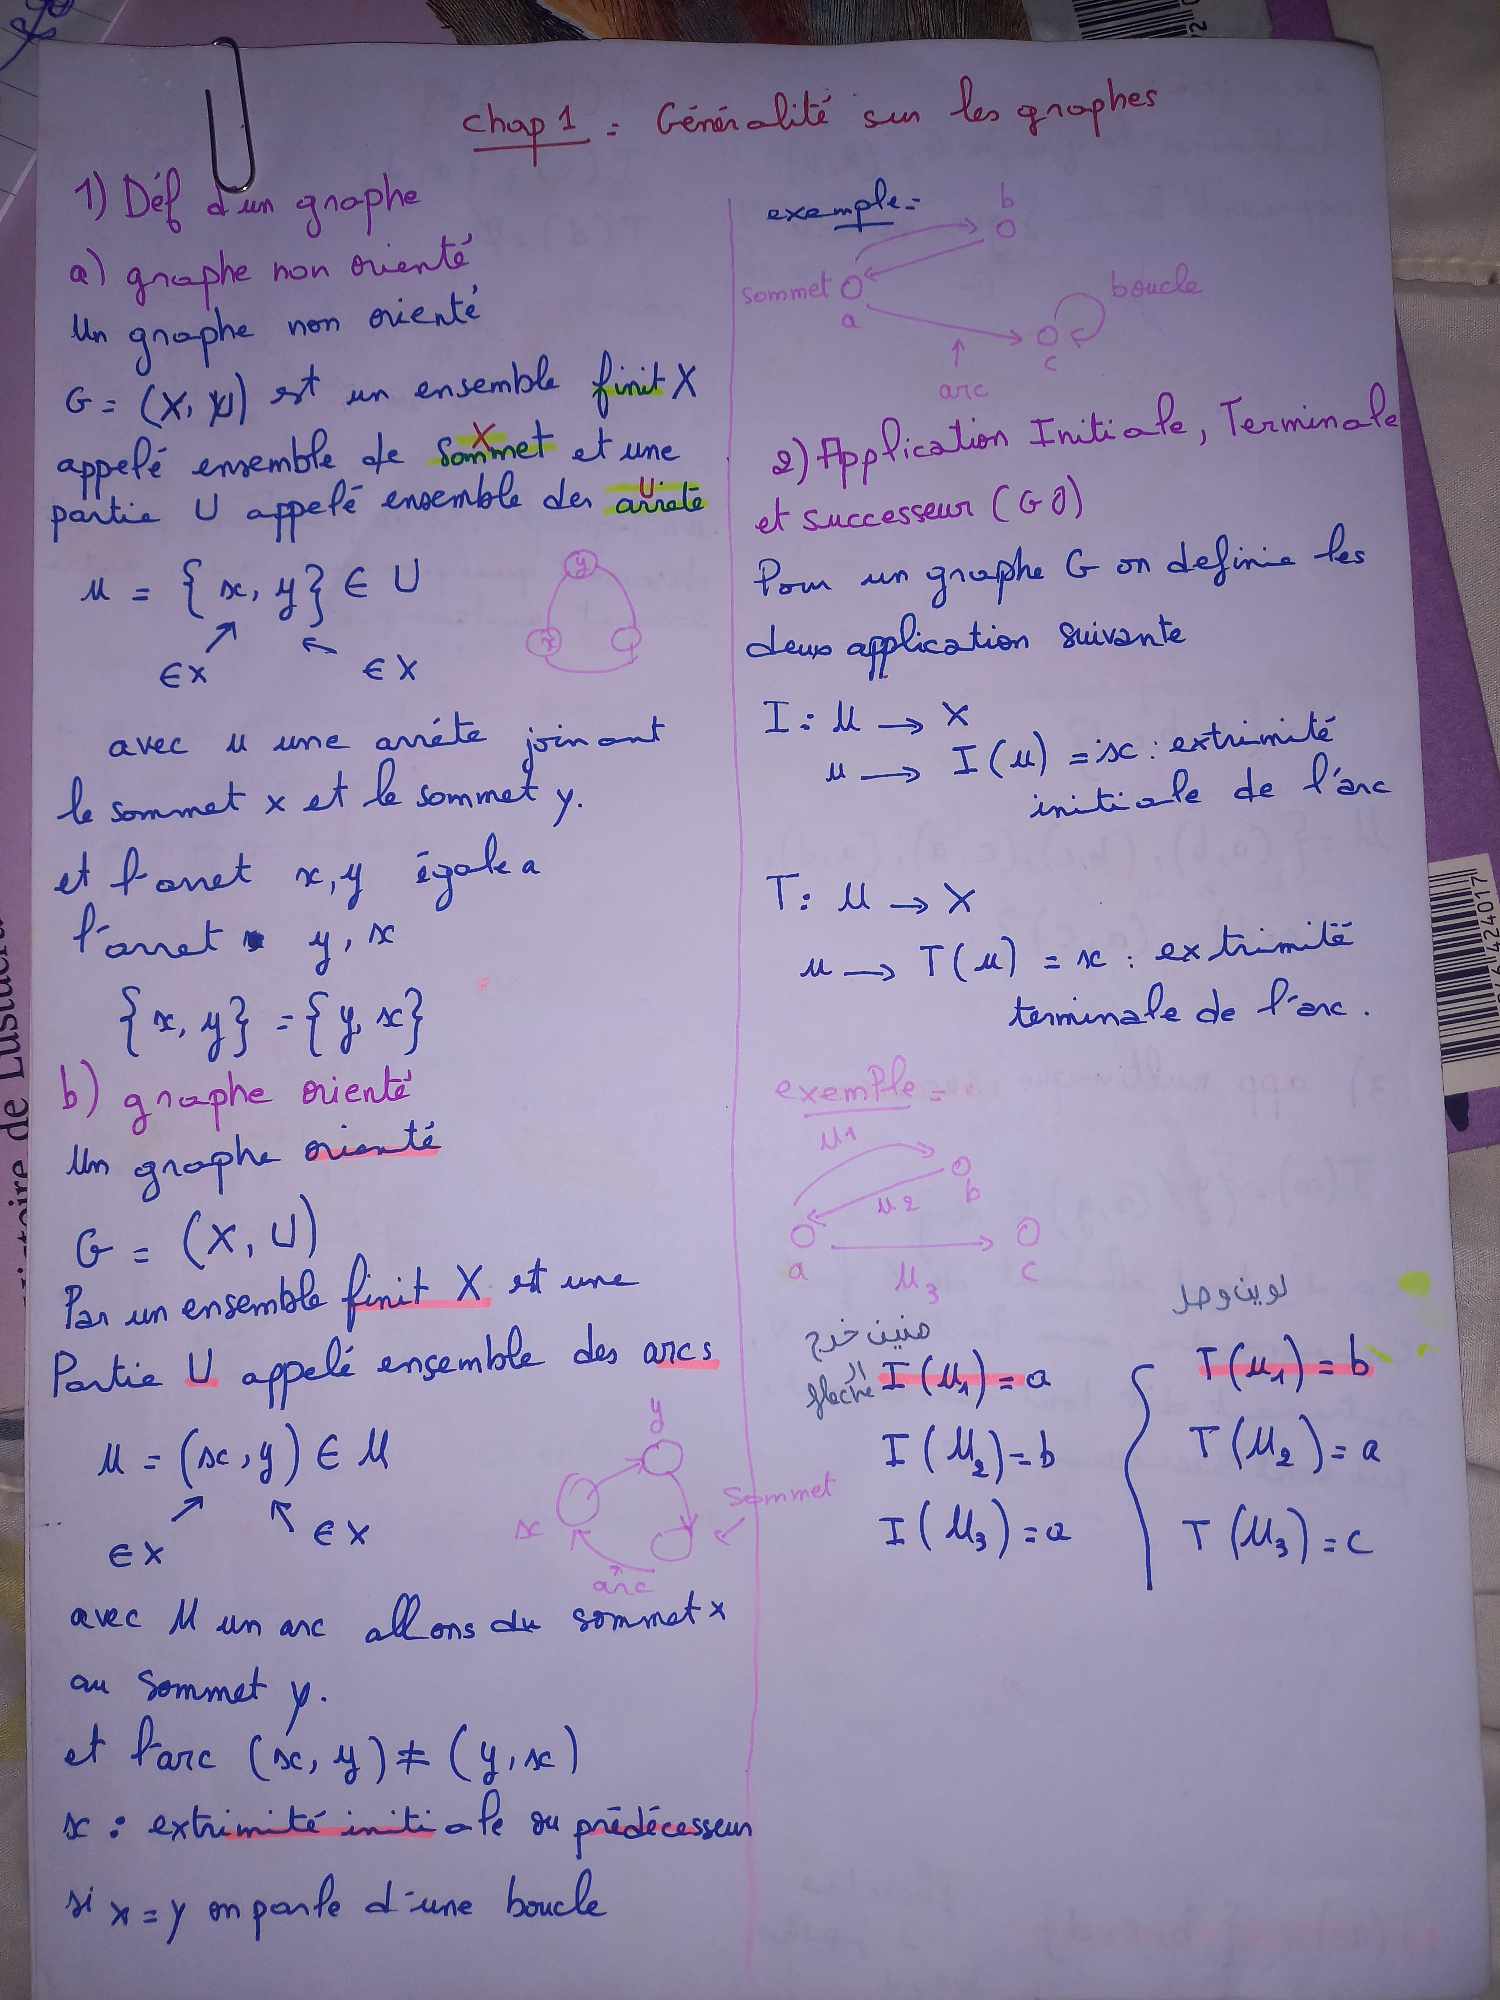 chap 1 : Généralité sur les graphes
1) Déf d'un graphe
a) graphe non orienté
Un graphe non orienté
G = (X, U) est un ensemble finit X
appelé ensemble de sommet et une
X
partie U appelé ensemble des arrete
U
u = {x, y} ∈ U
∈ X ∈ X
y
x
avec u une arréte joinant
le sommet x et le sommet y.
et l'arret x, y égale a
l'arret y, x
{x, y} = {y, x}
b) graphe orienté
Un graphe orienté
G = (X, U)
Par un ensemble finit X et une
Partie U appelé ensemble des arcs
u = (x, y) ∈ U
∈ X ∈ X
y
x
sommet
arc
avec U un arc allons du sommet x
au sommet y.
et l'arc (x, y) ≠ (y, x)
x : extrimité initiale ou prédécesseur
si x = y on parle d'une boucle
exemple =
b
sommet
a
boucle
c
arc
2) Application Initiale, Terminale
et successeur (GO)
Pour un graphe G on definie les
deux application suivante
I : U → X
u → I(u) = x : extrimité
initiale de l'arc
T : U → X
u → T(u) = x : extrimité
terminale de l'arc.
exemple =
u1
b
u2
a
u3
c
منين خرج
ال
fleche
لوين وصل
I(u1) = a
I(u2) = b
I(u3) = a
T(u1) = b
T(u2) = a
T(u3) = c
Histoire de Lustucru
424017